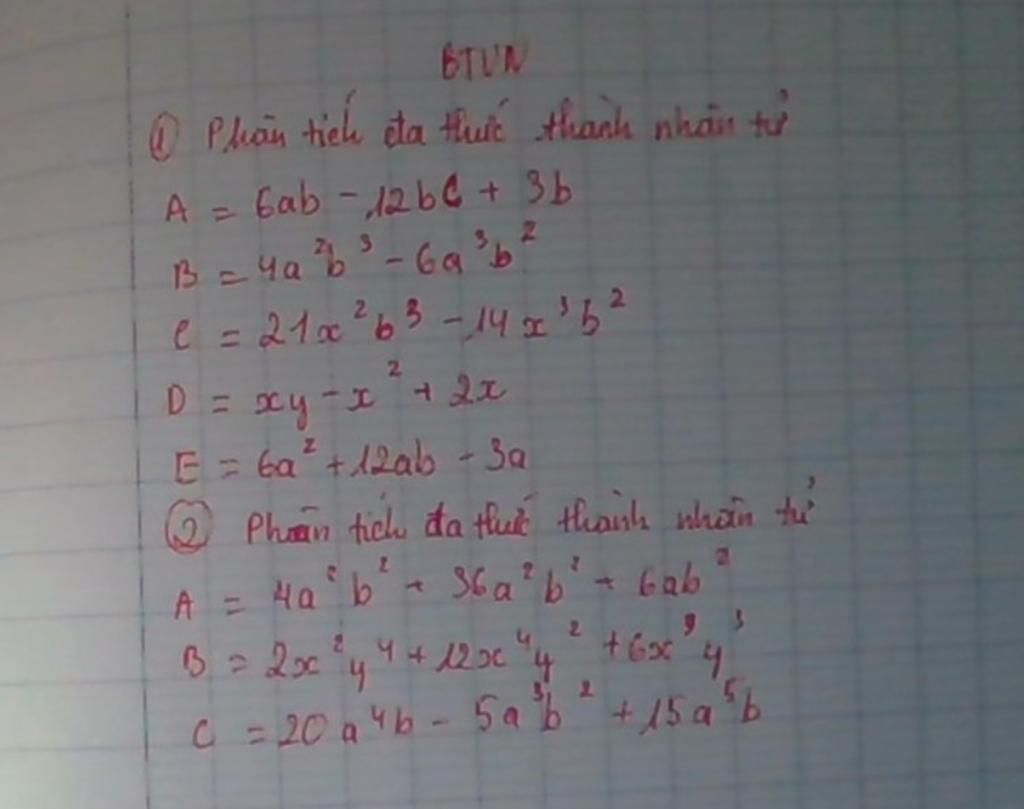 BTVN
① Phân tích đa thức thành nhân tử
A = 6ab - 12bc + 3b
B = 4a²b³ - 6a³b²
C = 21x²b³ - 14x³b²
D = xy - x² + 2x
E = 6a² + 12ab - 3a
② Phân tích đa thức thành nhân tử
A = 4a²b² - 36a²b² - 6ab²
B = 2x²y⁴ + 12x⁴y² + 6x³y³
C = 20a⁴b - 5a³b² + 15a⁵b